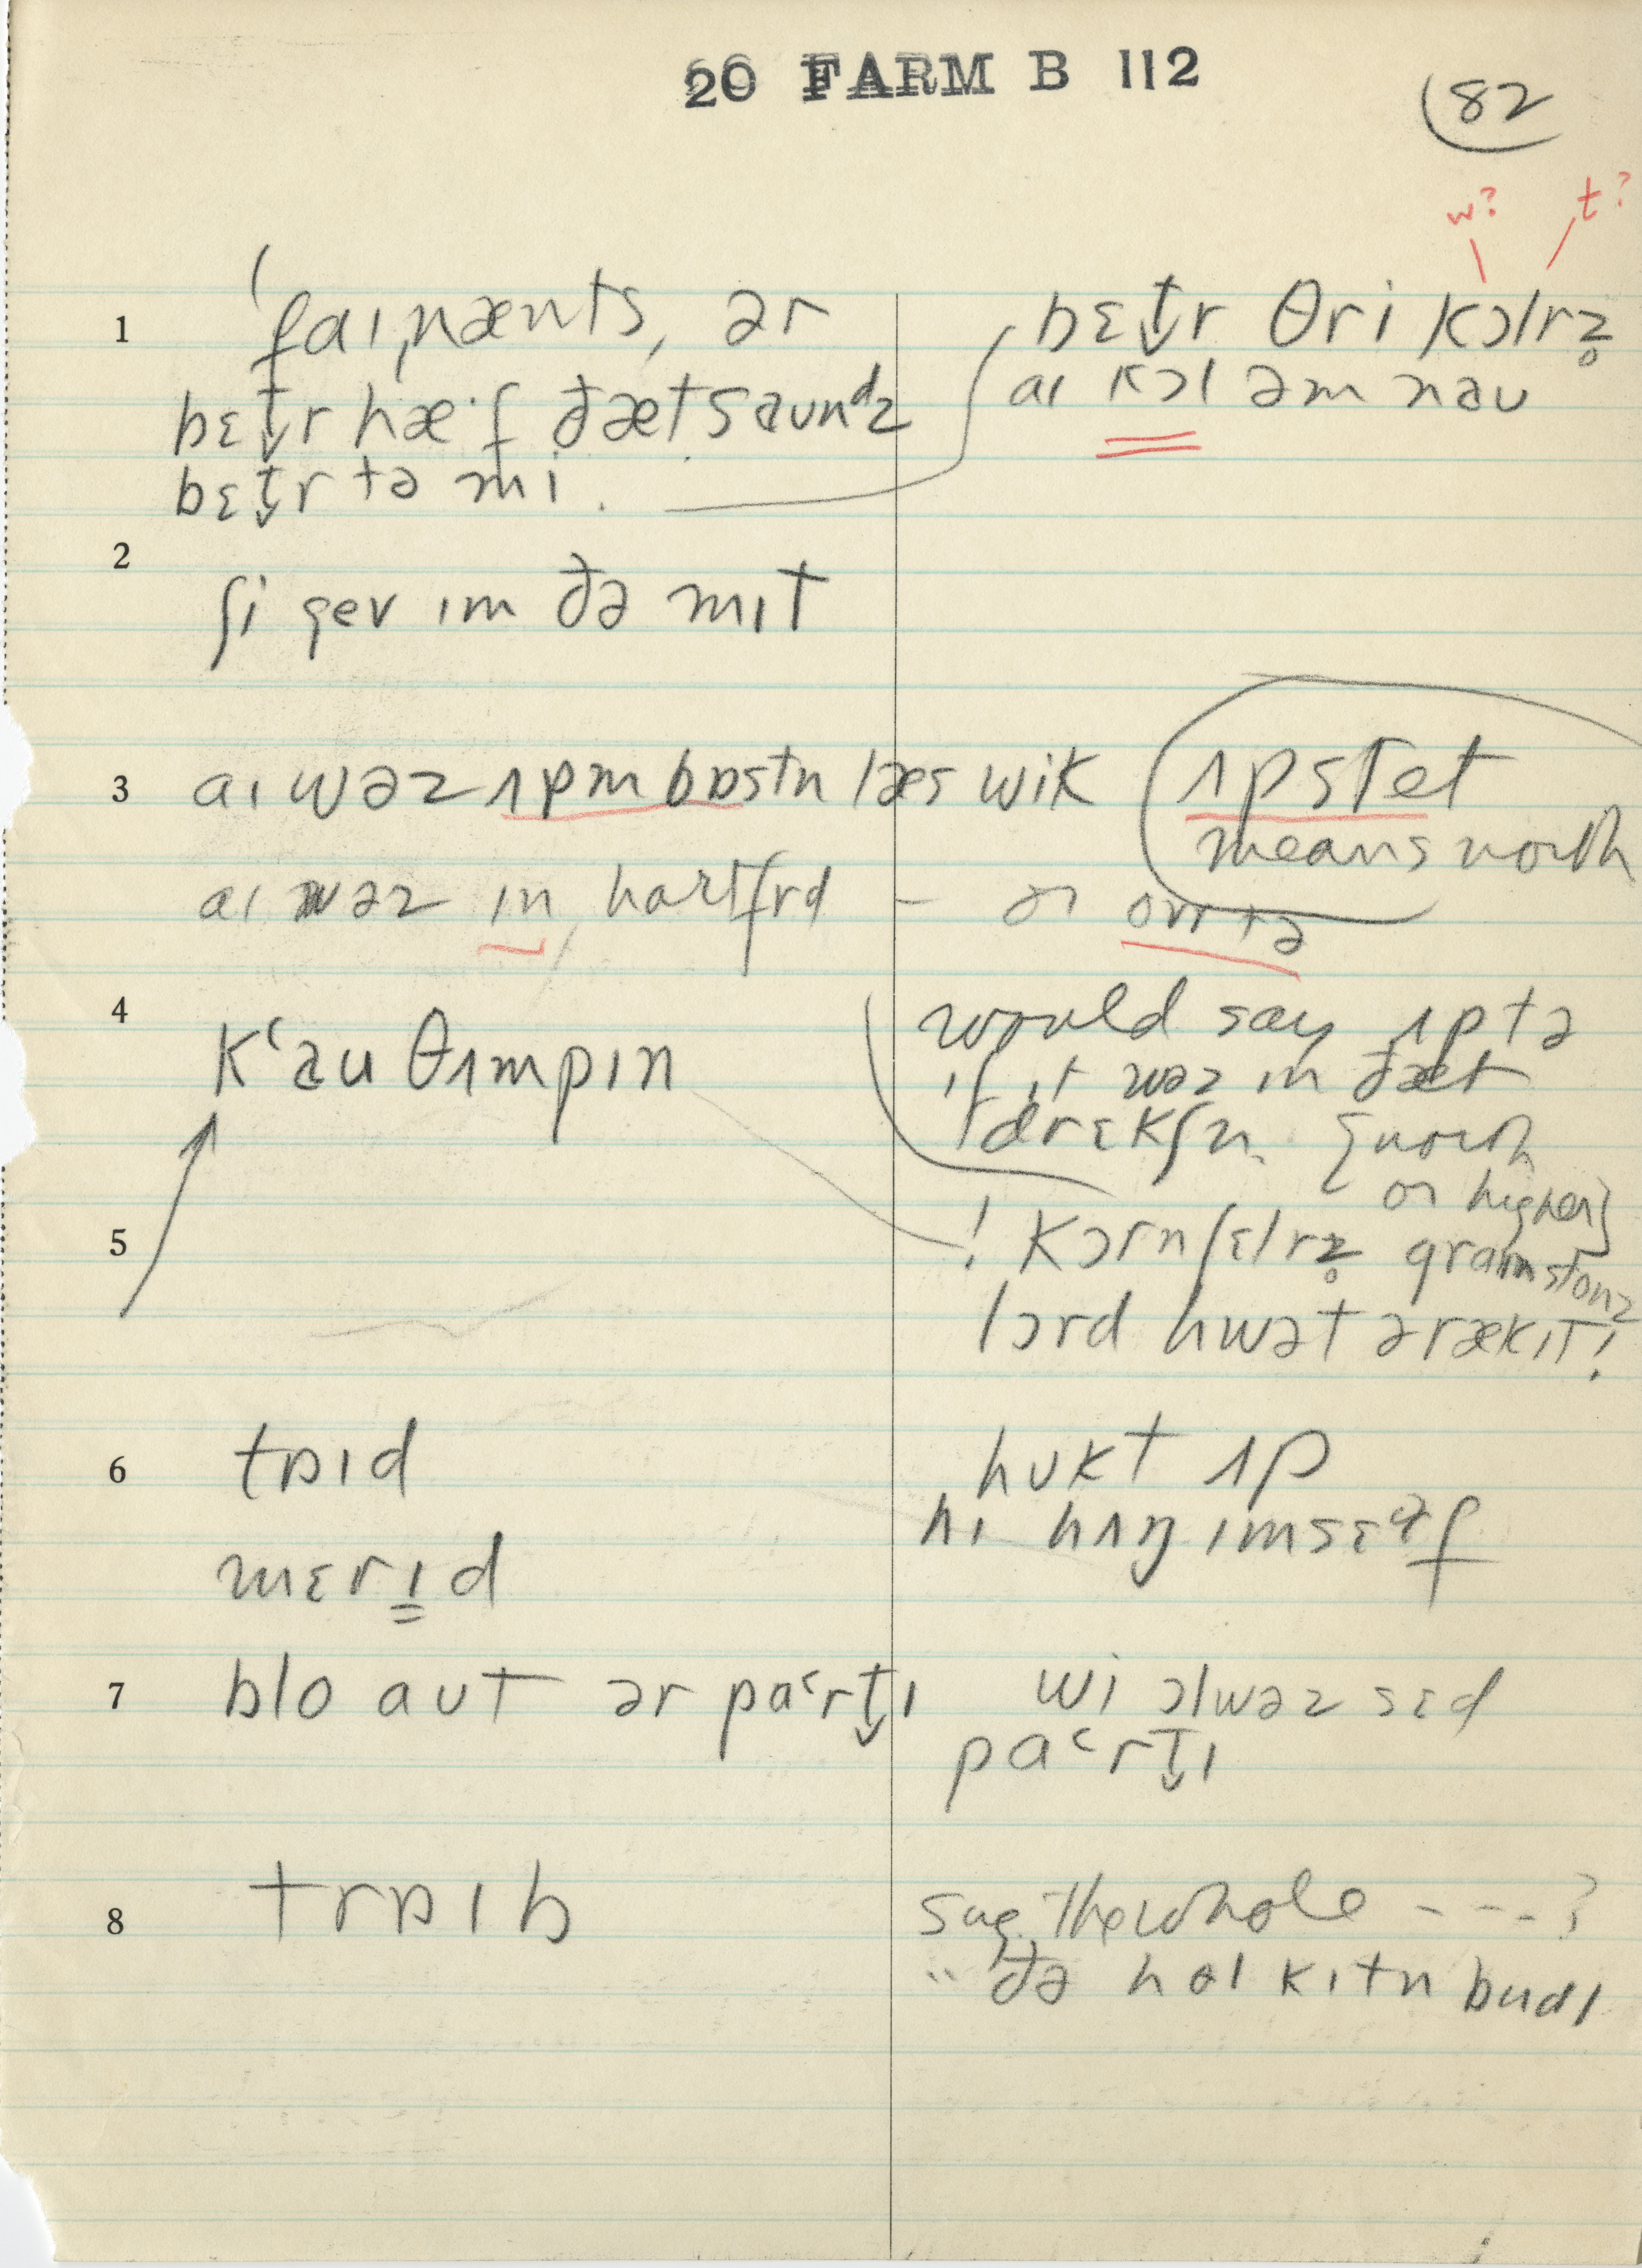 20 FARM B 112
82
w? t?
1
ˈfaɪˌnænts, ər
bɛt̬r hæ·f ðæt saʊnᵈz
bɛt̬r tə mi.
bɛt̬r θri kɔlrz̥
aɪ kɔl əm naʊ
2
ʃi gev ɪm ðə mɪt
3
aɪ wəz ʌpm bɒstn læs wik
ʌpstet
means north
aɪ wəz ɪn hartfrd – or ovr tə
4
kʻaʊ θʌmpɪn
would say ʌp tə
if it wəz in ðæt
drɛkʃn. {north
or higher}
5
! kɔrnʃɛlrz̥ graɪnstonz
lɔrd hwət ə rækɪt!
6
tɒɪd
mɛrɪd
hʊkt ʌp
hɪ hʌŋ ɪmsɛəɫf
7
blo aʊt ər paˤrt̬ɪ
wi ɔlwəz sɛd
paˤrt̬ɪ
8
trɒɪb
Sug. The whole - - - - ?
" ðə hol kɪtn budl